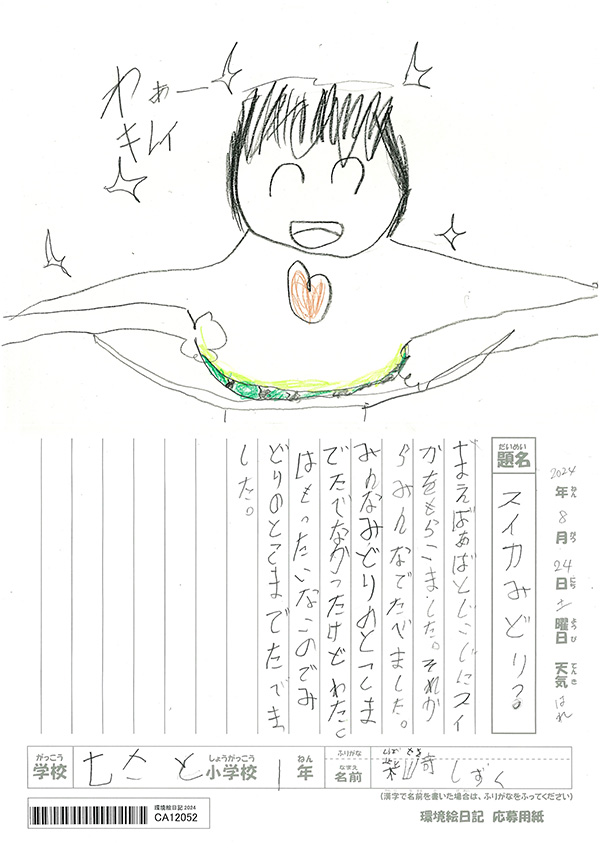 わぁー
キレイ
2024年8月24日土曜日 天気はれ
だいめい
題名 スイカみどり?
かをもらいました。それか
らみんなでたべました。
みんなみどりのとこま
でたべなかったけどわたし
はもったいないのでみ
どりのとこまでたべま
した。
がっこう しょうがっこう ねん ふりがな しばさき
学校 むさと小学校 1年 名前 柴崎 しずく
(漢字で名前を書いた場合は、ふりがなをふってください)
環境絵日記2024
CA12052
環境絵日記 応募用紙